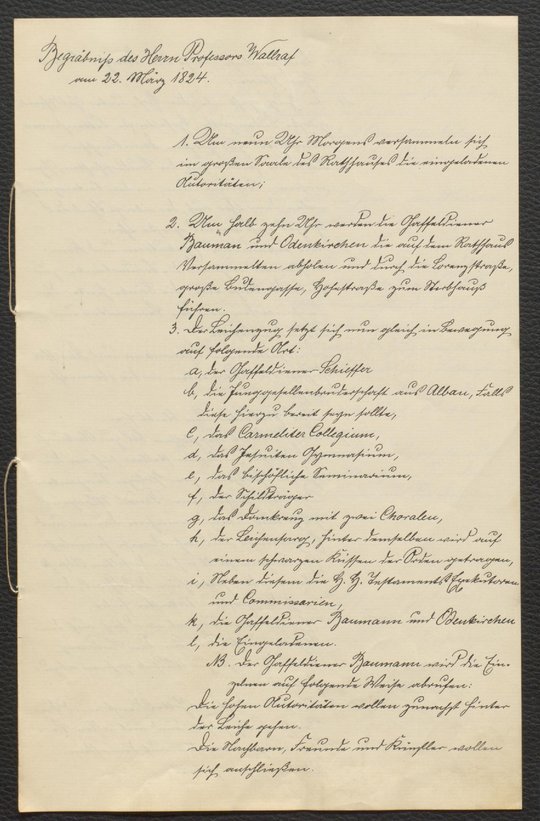 Begräbniß des Herrn Professors Wallraf
am 22. März 1824.
1. Um neun Uhr Morgens versammeln sich
im großen Saale des Rathhauses die eingeladenen
Autoritäten;
2. Um halb zehn Uhr werden die Gaffeldiener
Bauman und Odenkirchen die auf dem Rathhaus
Versammelten abholen und durch die Lorenzstraße,
große Budengasse, Hohestraße zum Sterbhauß
führen.
3. Der Leichenzug setzt sich nun gleich in Bewegung
auf folgende Art:
a, der Gaffeldiener Schieffer
b, die Junggesellenbruderschaft aus Alban, Falls
diese hierzu bereit seyn sollte,
c, das Carmeliter Collegium,
d, das Jesuiten Gymnasium,
e, das bischöfliche Seminarium,
f, der Schildträger
g, das Domkreuz mit zwei Choralen,
h, der Leichensarg, hinter demselben wird auf
einem schwarzen Küssen der Orden getragen,
i, Neben diesem die H. H. Testaments Exekutoren
und Commissarien,
k, die Gaffeldiener Baumann und Odenkirchen
l, die Eingeladenen.
NB. Der Gaffeldiener Baumann wird die Ein-
zelnen auf folgende Weise abrufen:
Die hohen Autoritäten wollen zunächst hinter
der Leiche gehen.
Die Nachbarn, Freunde und Künstler wollen
sich anschließen.